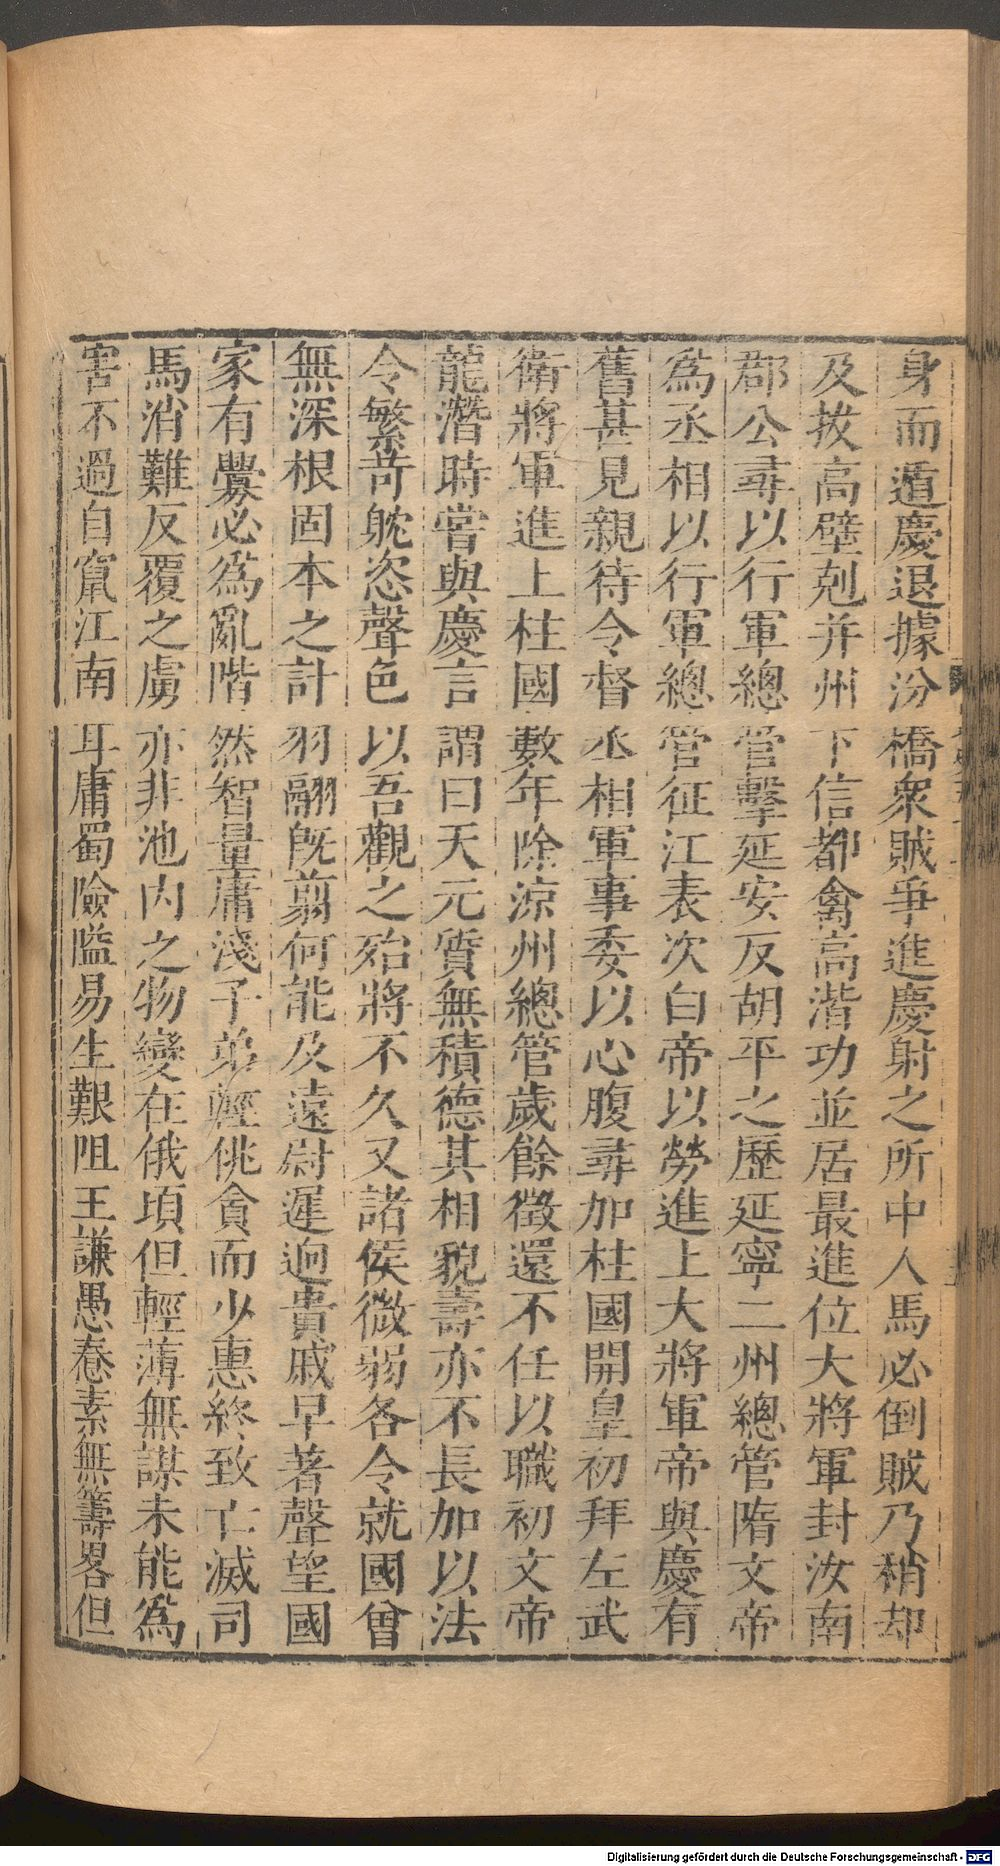 身而遁慶退據汾橋衆賊爭進慶射之所中人馬必倒賊乃稍却
及拔高壁剋并州下信都禽高湝功並居最進位大將軍封汝南
郡公尋以行軍總管擊延安反胡平之歷延寧二州總管隋文帝
爲丞相以行軍總管征江表次白帝以勞進上大將軍帝與慶有
舊甚見親待令督丞相軍事委以心腹尋加柱國開皇初拜左武
衛將軍進上柱國數年除涼州總管歲餘徵還不任以職初文帝
龍潛時嘗與慶言謂曰天元質無積德其相貌壽亦不長加以法
令繁苛躭恣聲色以吾觀之殆將不久又諸侯微弱各令就國曾
無深根固本之計羽翮既翦何能及遠尉遲逈貴戚早著聲望國
家有釁必爲亂階然智量庸淺子弟輕佻貪而少惠終致亡滅司
馬消難反覆之虜亦非池內之物變在俄頃但輕薄無謀未能爲
害不過自竄江南耳庸蜀險隘易生艱阻王謙愚惷素無籌畧但
Digitalisierung gefördert durch die Deutsche Forschungsgemeinschaft - DFG